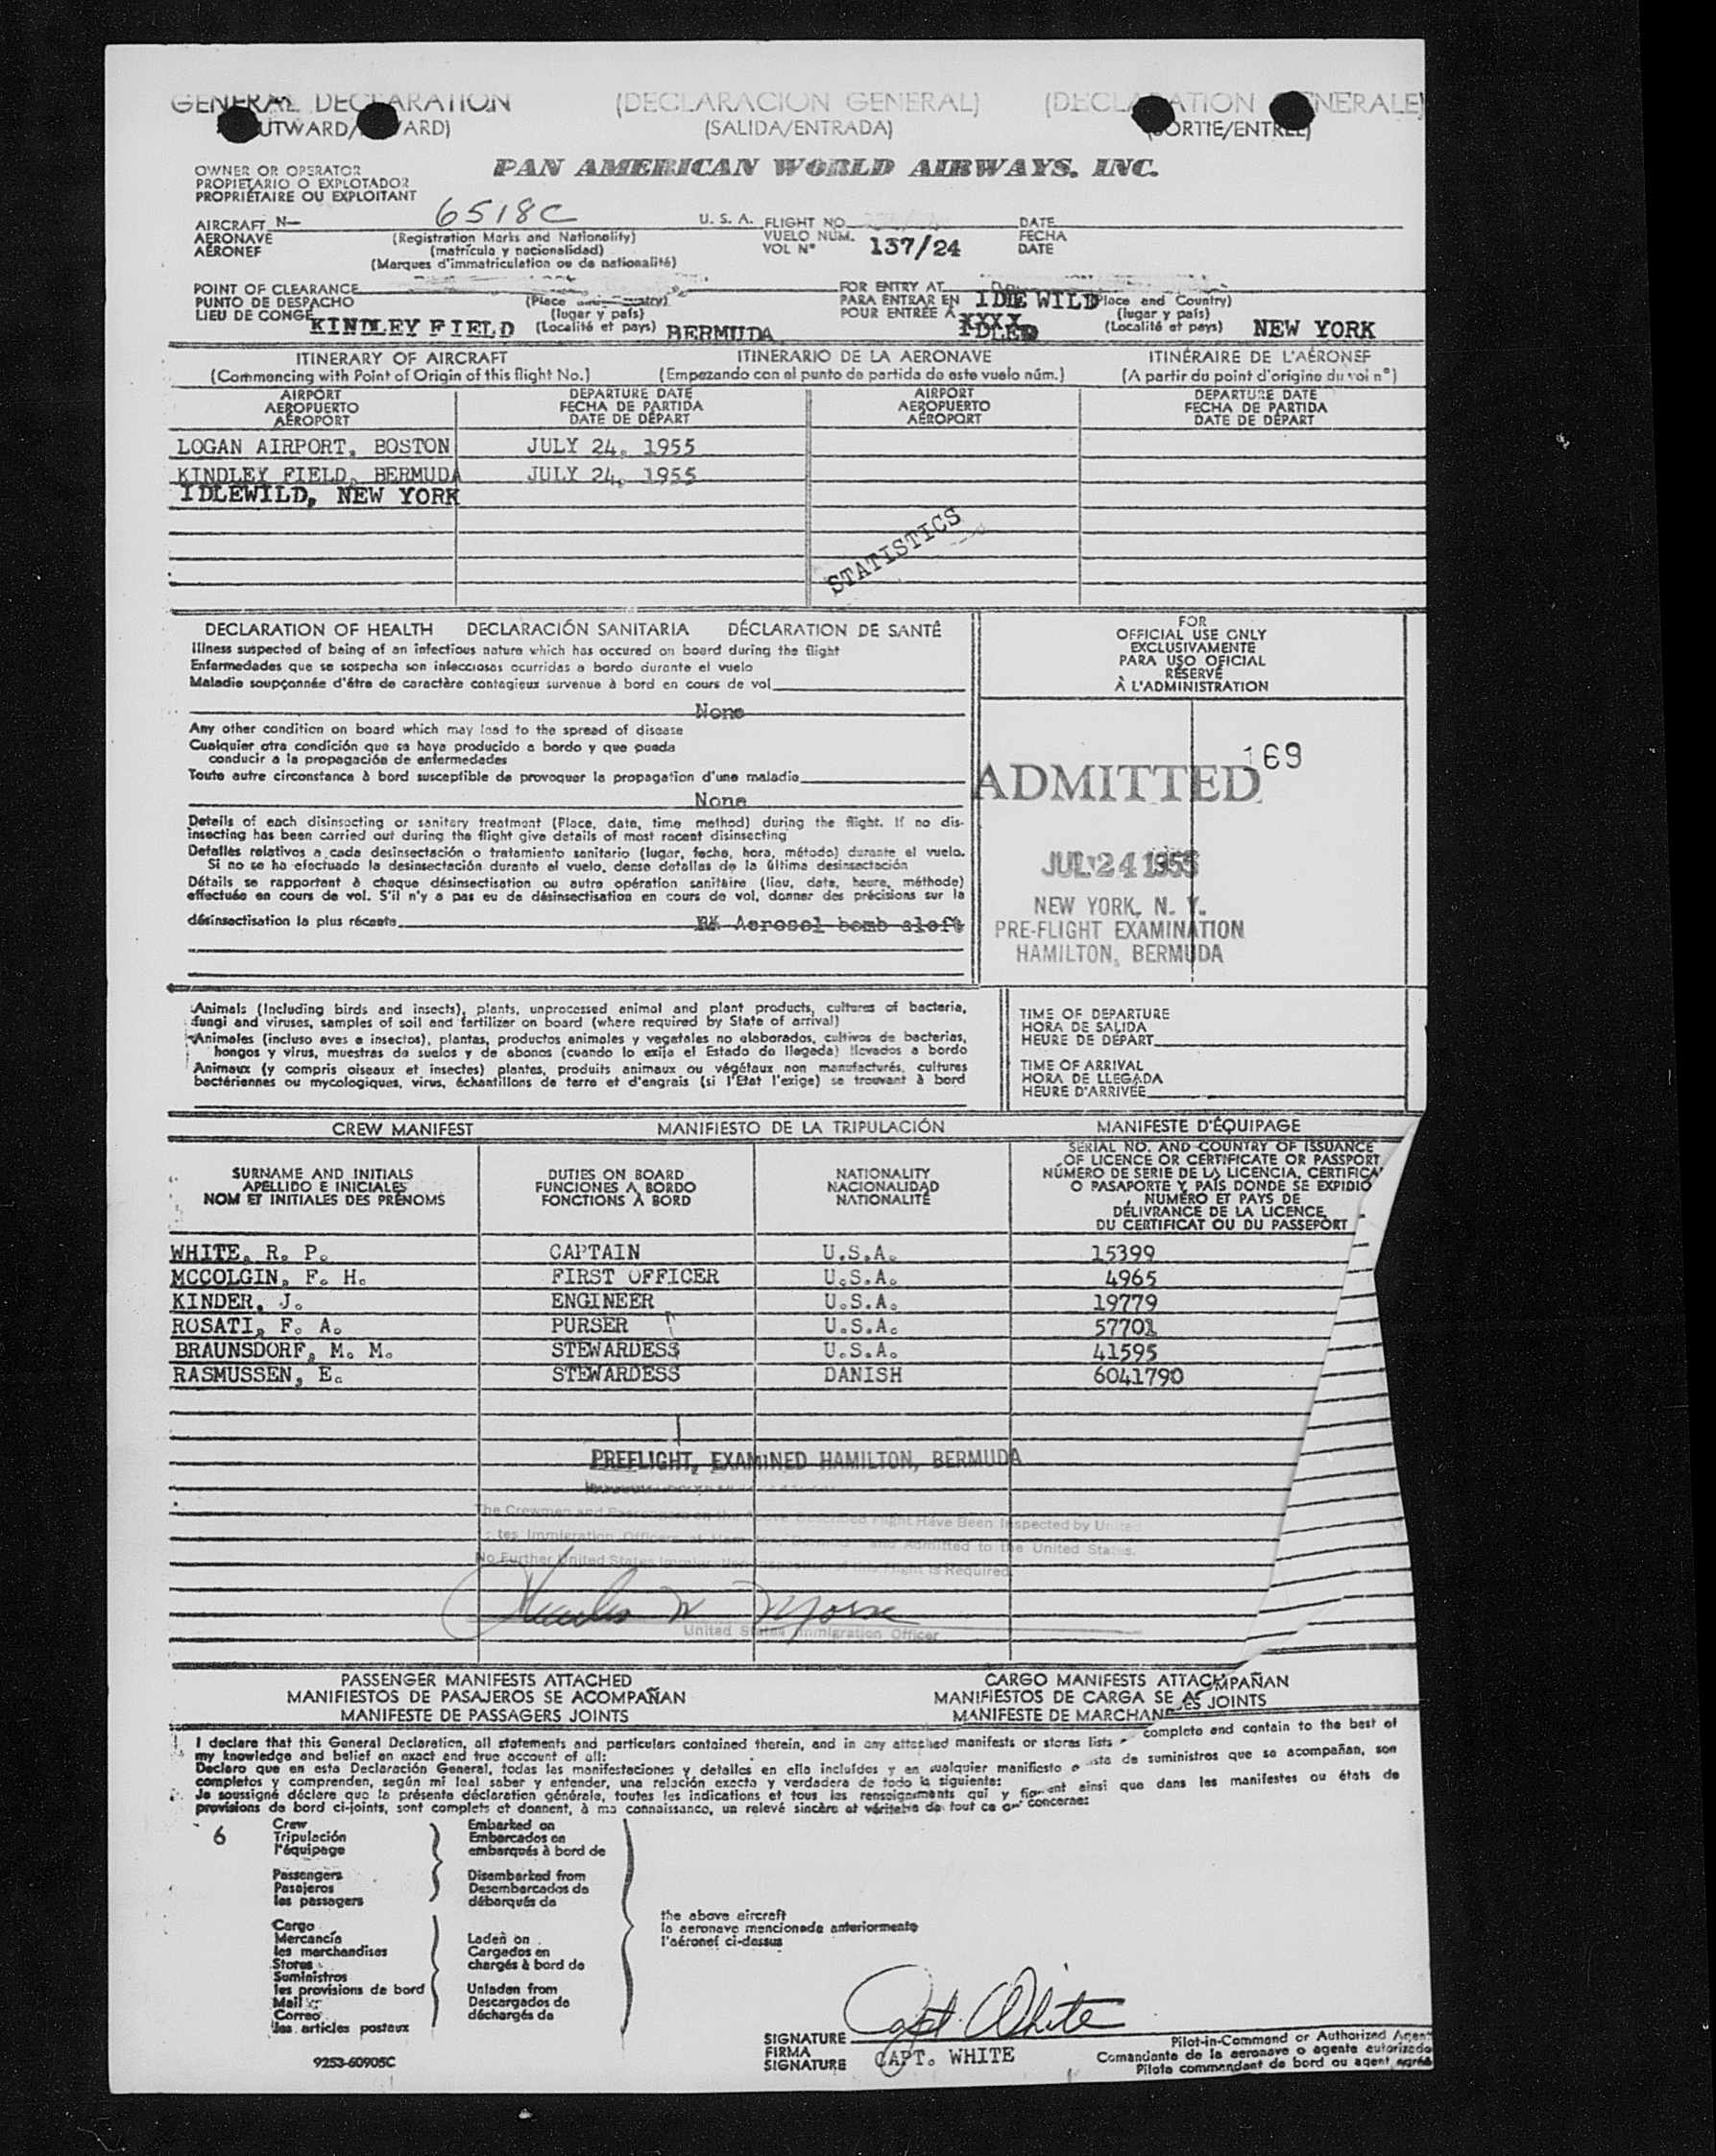 GENERAL DECLARATION (DECLARACION GENERAL) (DECLARATION GENERALE)
(SALIDA/ENTRADA)
OWNER OR OPERATOR
PROPIETARIO O EXPLOTADOR
PROPRIÉTAIRE OU EXPLOITANT
PAN AMERICAN WORLD AIRWAYS, INC.
AIRCRAFT N— 6518C U. S. A. FLIGHT NO. DATE
AERONAVE (Registration Marks and Nationality) VUELO NÚM. 137/24 FECHA
AÉRONEF (matrícula y nacionalidad) VOL Nº DATE
(Marques d'immatriculation ou de nationalité)
POINT OF CLEARANCE FOR ENTRY AT
PUNTO DE DESPACHO (Place PARA ENTRAR EN IDLE WILD (Place and Country)
LIEU DE CONGÉ (lugar y país) POUR ENTRÉE À XXXX (lugar y país)
KINDLEY FIELD (Localité et pays) BERMUDA (Localité et pays) NEW YORK
ITINERARY OF AIRCRAFT ITINERARIO DE LA AERONAVE ITINÉRAIRE DE L'AÉRONEF
(Commencing with Point of Origin of this flight No.) (Empezando con el punto de partida de este vuelo núm.) (A partir du point d'origine du vol nº)
AIRPORT DEPARTURE DATE AIRPORT DEPARTURE DATE
AEROPUERTO FECHA DE PARTIDA AEROPUERTO FECHA DE PARTIDA
AÉROPORT DATE DE DÉPART AÉROPORT DATE DE DÉPART
LOGAN AIRPORT, BOSTON JULY 24, 1955
KINDLEY FIELD, BERMUDA JULY 24, 1955
IDLEWILD, NEW YORK
STATISTICS
DECLARATION OF HEALTH DECLARACIÓN SANITARIA DÉCLARATION DE SANTÉ
Illness suspected of being of an infectious nature which has occured on board during the flight
Enfermedades que se sospecha son infecciosas ocurridas a bordo durante el vuelo
Maladie soupçonnée d'être de caractère contagieux survenue à bord en cours de vol
None
Any other condition on board which may lead to the spread of disease
Cualquier otra condición que se haya producido a bordo y que pueda
conducir a la propagación de enfermedades
Toute autre circonstance à bord susceptible de provoquer la propagation d'une maladie
None
Details of each disinsecting or sanitary treatment (Place, date, time method) during the flight. If no dis-
insecting has been carried out during the flight give details of most recent disinsecting
Detalles relativos a cada desinsectación o tratamiento sanitario (lugar, fecha, hora, método) durante el vuelo.
Si no se ha efectuado la desinsectación durante el vuelo, dense detalles de la última desinsectación
Détails se rapportant à chaque désinsectisation ou autre opération sanitaire (lieu, date, heure, méthode)
effectuée en cours de vol. S'il n'y a pas eu de désinsectisation en cours de vol, donner des précisions sur la
désinsectisation la plus récente Aerosol bomb aloft
FOR
OFFICIAL USE ONLY
EXCLUSIVAMENTE
PARA USO OFICIAL
RÉSERVÉ
À L'ADMINISTRATION
169
ADMITTED
JUL 24 1955
NEW YORK, N. Y.
PRE-FLIGHT EXAMINATION
HAMILTON, BERMUDA
Animals (Including birds and insects), plants, unprocessed animal and plant products, cultures of bacteria,
fungi and viruses, samples of soil and fertilizer on board (where required by State of arrival)
Animales (incluso aves e insectos), plantas, productos animales y vegetales no elaborados, cultivos de bacterias,
hongos y virus, muestras de suelos y de abonos (cuando lo exija el Estado de llegada) llevados a bordo
Animaux (y compris oiseaux et insectes) plantes, produits animaux ou végétaux non manufacturés, cultures
bactériennes ou mycologiques, virus, échantillons de terre et d'engrais (si l'État l'exige) se trouvant à bord
TIME OF DEPARTURE
HORA DE SALIDA
HEURE DE DÉPART
TIME OF ARRIVAL
HORA DE LLEGADA
HEURE D'ARRIVÉE
CREW MANIFEST MANIFIESTO DE LA TRIPULACIÓN MANIFESTE D'ÉQUIPAGE
SURNAME AND INITIALS
APELLIDO E INICIALES
NOM ET INITIALES DES PRÉNOMS
DUTIES ON BOARD
FUNCIONES A BORDO
FONCTIONS À BORD
NATIONALITY
NACIONALIDAD
NATIONALITÉ
SERIAL NO. AND COUNTRY OF ISSUANCE
OF LICENCE OR CERTIFICATE OR PASSPORT
NÚMERO DE SERIE DE LA LICENCIA, CERTIFICA
O PASAPORTE Y PAÍS DONDE SE EXPIDIÓ
NUMÉRO ET PAYS DE
DÉLIVRANCE DE LA LICENCE,
DU CERTIFICAT OU DU PASSEPORT
WHITE, R. P. CAPTAIN U.S.A. 15399
MCCOLGIN, F. H. FIRST OFFICER U.S.A. 4965
KINDER, J. ENGINEER U.S.A. 19779
ROSATI, F. A. PURSER U.S.A. 57701
BRAUNSDORF, M. M. STEWARDESS U.S.A. 41595
RASMUSSEN, E. STEWARDESS DANISH 6041790
PREFLIGHT, EXAMINED HAMILTON, BERMUDA
The Crewmen and Passengers on the Above Described Flight Have Been Inspected by United
tes Immigration Officers at and Admitted to the United States.
No Further United States Inspection of this Flight is Required.
United States Immigration Officer
PASSENGER MANIFESTS ATTACHED
MANIFIESTOS DE PASAJEROS SE ACOMPAÑAN
MANIFESTE DE PASSAGERS JOINTS
CARGO MANIFESTS ATTACH MPAÑAN
MANIFIESTOS DE CARGA SE A ES JOINTS
MANIFESTE DE MARCHAN
I declare that this General Declaration, all statements and particulars contained therein, and in any attached manifests or stores lists complete and contain to the best of
my knowledge and belief an exact and true account of all:
Declaro que en esta Declaración General, todas las manifestaciones y detalles en ella incluídos y en cualquier manifiesto o ista de suministros que se acompañan, son
completos y comprenden, según mi leal saber y entender, una relación exacta y verdadera de todo lo siguiente:
Je soussigné déclare que la présente déclaration générale, toutes les indications et tous les renseignements qui y figurent ainsi que dans les manifestes ou états de
provisions de bord ci-joints, sont complets et donnent, à ma connaissance, un relevé sincère et véritable de tout ce qui concerne:
6
Crew
Tripulación
l'équipage
Passengers
Pasajeros
les passagers
Cargo
Mercancía
les marchandises
Stores
Suministros
les provisions de bord
Mail
Correo
les articles postaux
Embarked on
Embarcados en
embarqués à bord de
Disembarked from
Desembarcados de
débarqués de
Laden on
Cargados en
chargés à bord de
Unladen from
Descargados de
déchargés de
the above aircraft
la aeronave mencionada anteriormente
l'aéronef ci-dessus
Capt. White
SIGNATURE
FIRMA
SIGNATURE
CAPT. WHITE
Pilot-in-Command or Authorized Agent
Comandante de la aeronave o agente autorizado
Pilote commandant de bord ou agent agréé
9253-60905C